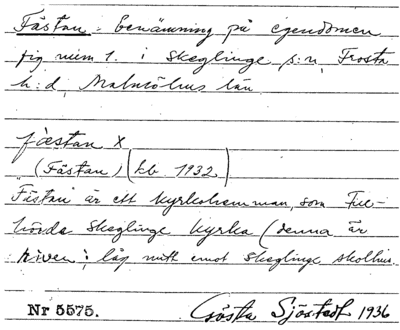 Fästan: benämning på egendomen
fig num 1. i Skeglinge s:n, Frosta
h:d, Malmöhus län
fæstan x
(Fästan) (kb 1932)
"Fästan" är ett kyrkohemman, som
hörde Skeglinge kyrka (denna är
riven; låg mitt emot Skeglinge skolhus.
Nr 5575. Gösta Sjöstedt 1936